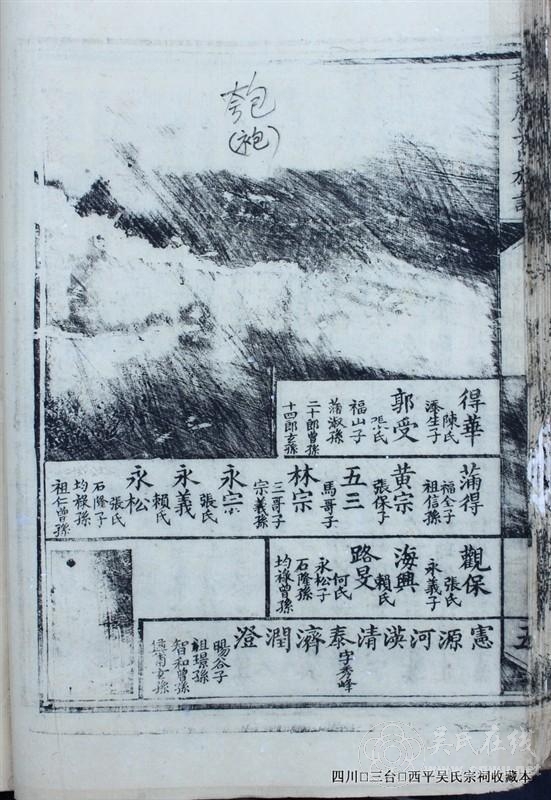 夸包
(袍)
得華
陳氏
添生子
郭受
張氏
福山子
蒲淑孫
二十郎曾孫
十四郎玄孫
蒲得
福全子
祖信孫
黄宗
張保子
五三
馬哥子
林宗
三哥子
宗義孫
永宗
張氏
永義
賴氏
永松
張氏
石隆子
均祿孫
祖仁曾孫
觀保
張氏
永義子
海興
賴氏
路旻
何氏
永松子
石隆孫
均祿曾孫
憲
源
河
漢
清
泰
字秀峰
濟
潤
澄
暘谷子
祖璟孫
智和曾孫
吴氏在线
四川□三台□西平吴氏宗祠收藏本